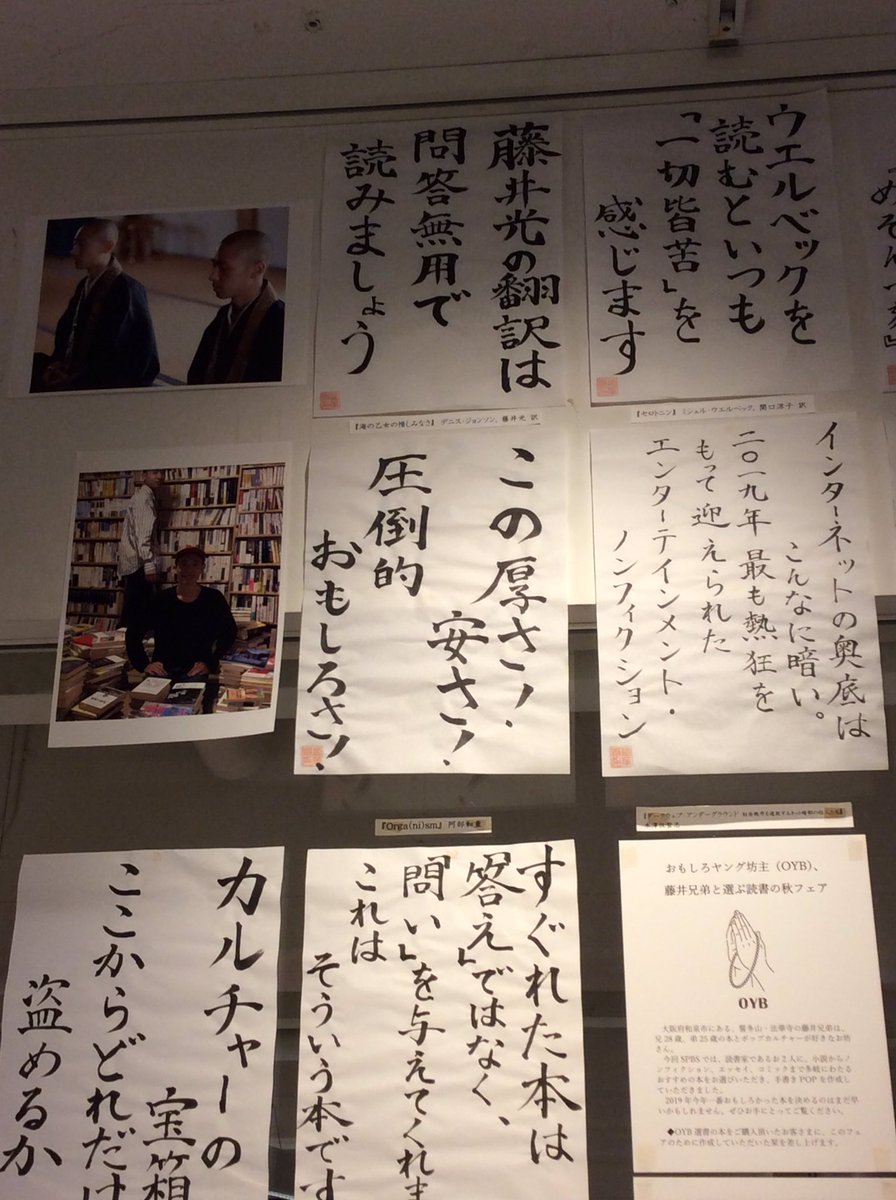 ウエルベックを
読むといつも
「一切皆苦」を
感じます
『セロトニン』 ミシェル・ウエルベック、関口涼子 訳
藤井光の翻訳は
問答無用で
読みましょう
『海の乙女の惜しみなさ』 デニス・ジョンソン、藤井光 訳
インターネットの奥底は
こんなに暗い。
二〇一九年 最も熱狂を
もって迎えられた
エンターテインメント・
ノンフィクション
この厚さ!
安さ!
圧倒的
おもしろさ!
『Orga(ni)sm』 阿部和重
すぐれた本は
「答え」ではなく、
「問い」を与えてくれま
これは
そういう本です
カルチャーの
宝箱
ここからどれだけ
盗めるか
おもしろヤング坊主（OYB）、
藤井兄弟と選ぶ読書の秋フェア
OYB
大阪府和泉市にある、
法華寺の藤井兄弟は、
兄28歳、弟25歳の本とポップカルチャーが好きなお坊
さん。
今回SPBSでは、読書家であるお2人に、小説からノ
ンフィクション、エッセイ、コミックまで多岐にわたる
おすすめの本をお選びいただき、手書きPOPを作成し
ていただきました。
2019年今年一番おもしろかった本を決めるのはまだ早
いかもしれません。ぜひお手にとってご覧ください。
◆OYB選書の本をご購入頂いたお客さまに、このフェ
アのために作成していただいた栞を差し上げます。